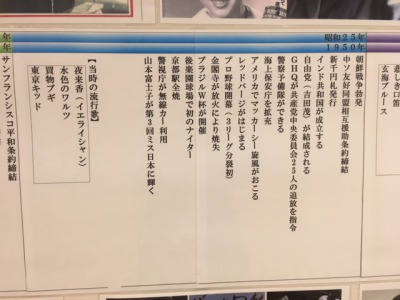 悲しき口笛
玄海ブルース
昭和25年
1950年
朝鮮戦争勃発
中ソ友好同盟相互援助条約締結
新千円札発行
インド共和国が成立する
自由党（吉田茂）が結成される
GHQが共産党中央委員会25人の追放を指令
警察予備隊ができる
海上保安庁を拡充
アメリカでマッカーシー旋風がおこる
レッドパージがはじまる
プロ野球開幕（3リーグ分裂初）
金閣寺が放火により焼失
ブラジルW杯が開催
後楽園球場で初のナイター
京都駅全焼
警視庁が無線カー利用
山本富士子が第3回ミス日本に輝く
【当時の流行歌】
夜来香（イエライシャン）
水色のワルツ
買物ブギ
東京キッド
年
年
サンフランシスコ平和条約締結